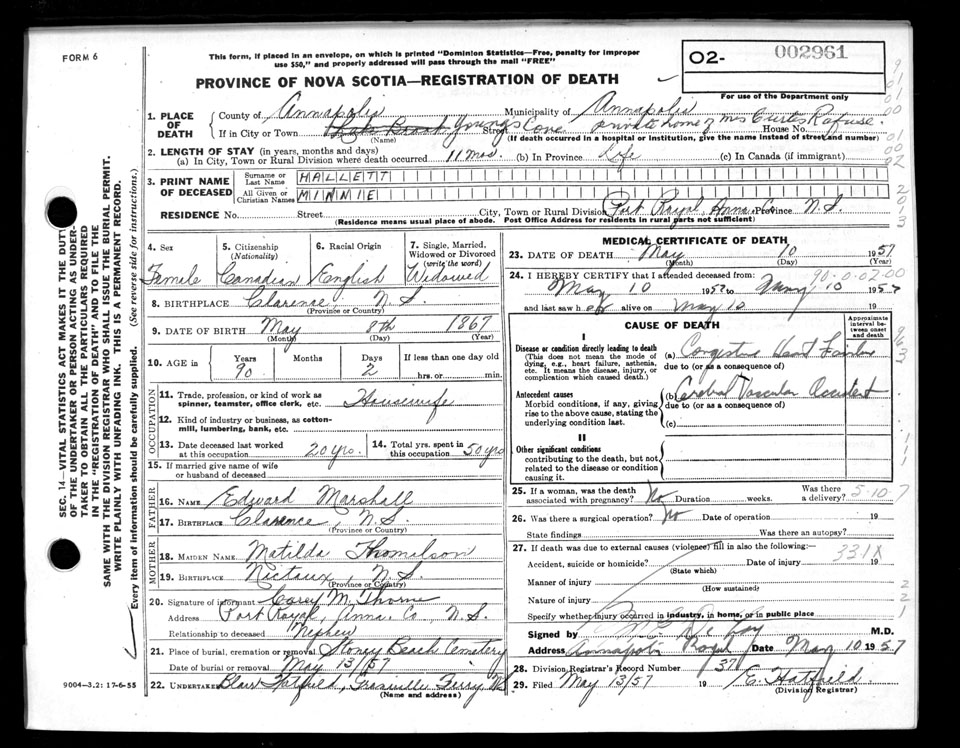 FORM 6
This form, if placed in an envelope, on which is printed "Dominion Statistics—Free, penalty for improper
use $50," and properly addressed will pass through the mail "FREE"
O2- 002961
For use of the Department only
PROVINCE OF NOVA SCOTIA—REGISTRATION OF DEATH
1. PLACE OF DEATH
County of Annapolis Municipality of Annapolis
If in City or Town Youngs Cove Street private home of Mrs Curtis Rafuse House No.
(Name) (If death occurred in a hospital or institution, give the name instead of street and number)
2. LENGTH OF STAY (in years, months and days)
(a) In City, Town or Rural Division where death occurred 11 mos. (b) In Province Life (c) In Canada (if immigrant)
3. PRINT NAME OF DECEASED
Surname or Last Name HALLETT
All Given or Christian Names MINNIE
RESIDENCE No. Street City, Town or Rural Division Port Royal, Anna. Co Province N.S.
(Residence means usual place of abode. Post Office Address for residents in rural parts not sufficient)
4. Sex Female
5. Citizenship (Nationality) Canadian
6. Racial Origin English
7. Single, Married, Widowed or Divorced (write the word) Widowed
8. BIRTHPLACE Clarence N.S.
(Province or Country)
9. DATE OF BIRTH May 8th 1867
(Month) (Day) (Year)
10. AGE in Years 90 Months Days 2 If less than one day old hrs. or min.
OCCUPATION
11. Trade, profession, or kind of work as spinner, teamster, office clerk, etc. Housewife
12. Kind of industry or business, as cotton-mill, lumbering, bank, etc.
13. Date deceased last worked at this occupation 20 yrs.
14. Total yrs. spent in this occupation 50 yrs
15. If married give name of wife or husband of deceased
FATHER
16. NAME Edward Marshall
17. BIRTHPLACE Clarence, N.S.
(Province or Country)
MOTHER
18. MAIDEN NAME Matilda Thomalson
19. BIRTHPLACE Nictaux, N.S.
(Province or Country)
20. Signature of informant Carey M. Thorne
Address Port Royal, Anna. Co. N.S.
Relationship to deceased Nephew
21. Place of burial, cremation or removal Stoney Beach Cemetery
Date of burial or removal May 13/57
22. UNDERTAKER Blair Hatfield, Granville Ferry, N.S.
(Name and address)
9004—3.2: 17-6-55
MEDICAL CERTIFICATE OF DEATH
23. DATE OF DEATH May 10 1957
(Month) (Day)
24. I HEREBY CERTIFY that I attended deceased from:
May 10 1957 to May 10 1957
and last saw her alive on May 10 19
CAUSE OF DEATH
Approximate interval between onset and death
I
Disease or condition directly leading to death
(This does not mean the mode of dying, e.g., heart failure, asthenia, etc. It means the disease, injury, or complication which caused death.)
(a) Congestive Heart Failure
due to (or as a consequence of)
Antecedent causes
Morbid conditions, if any, giving rise to the above cause, stating the underlying condition last.
(b) Cerebral Vascular Accident
due to (or as a consequence of)
(c)
II
Other significant conditions
contributing to the death, but not related to the disease or condition causing it.
25. If a woman, was the death associated with pregnancy? No Duration weeks. Was there a delivery? 5-10 7
26. Was there a surgical operation? No Date of operation 19
State findings Was there an autopsy?
27. If death was due to external causes (violence) fill in also the following:—
Accident, suicide or homicide? Date of injury 19 331X
(State which)
Manner of injury
(How sustained)
Nature of injury
Specify whether injury occurred in industry, in home, or in public place
Signed by M.D.
Address Annapolis Royal Date May 10 1957
28. Division Registrar's Record Number 37
29. Filed May 13/57 19 E. Hatfield
(Division Registrar)
SEC. 14—VITAL STATISTICS ACT MAKES IT THE DUTY
OF THE UNDERTAKER OR PERSON ACTING AS UNDER-
TAKER TO OBTAIN ALL THE PARTICULARS REQUIRED
IN THE "REGISTRATION OF DEATH" AND TO FILE THE
SAME WITH THE DIVISION REGISTRAR WHO SHALL ISSUE THE BURIAL PERMIT.
WRITE PLAINLY WITH UNFADING INK. THIS IS A PERMANENT RECORD.
Every item of information should be carefully supplied. (See reverse side for instructions.)